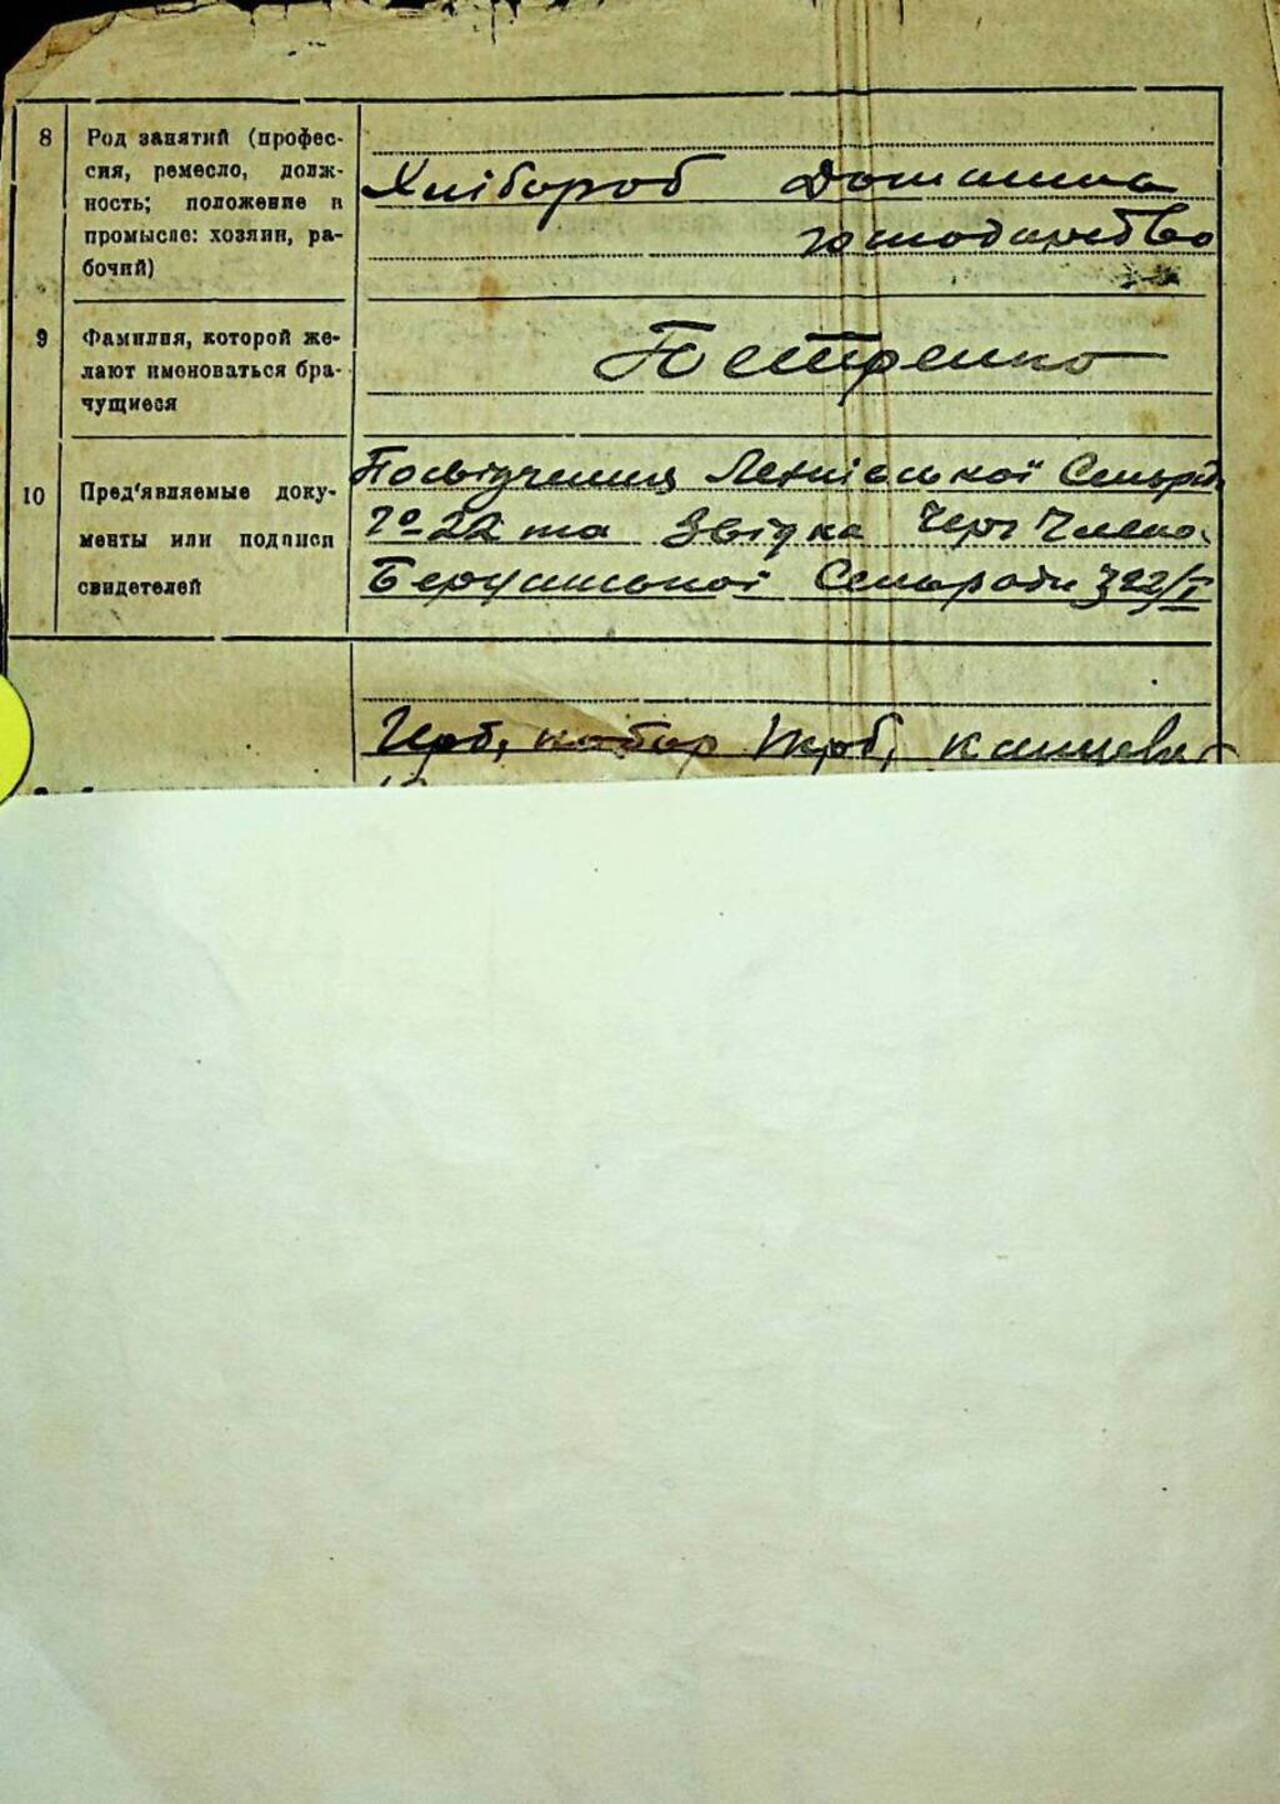 8 Род занятий (профес-
сия, ремесло, долж-
ность; положение в
промысле: хозяин, ра-
бочий)
Хлібороб Домашнє
господарство
9 Фамилия, которой же-
лают именоваться бра-
чущиеся
Петренко
10 Пред'являемые доку-
менты или подписи
свидетелей
Посвідчення Сельради
№ 22 та Звідка
Сельради 322/I